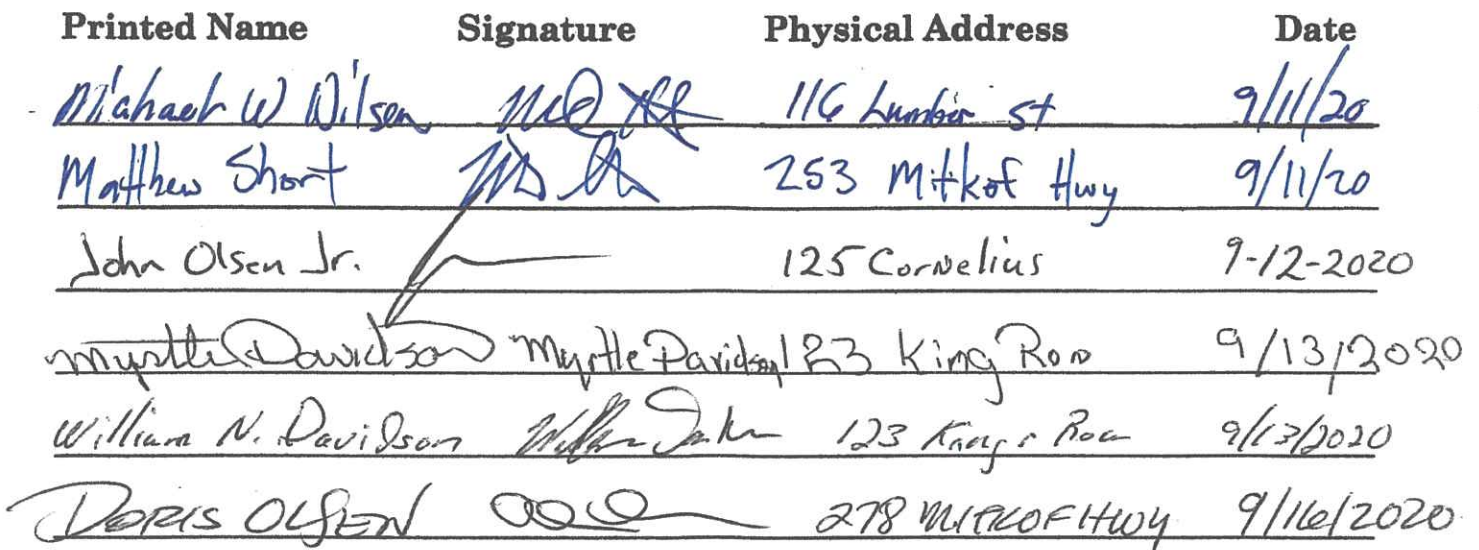 Printed Name Signature Physical Address Date
Michael W Nilsen 116 Lumber St 9/11/20
Matthew Short 253 Mitkof Hwy 9/11/20
John Olsen Jr. 125 Cornelius 9-12-2020
Myrtle Davidson Myrtle Davidson 123 King Row 9/13/2020
William N. Davidson 123 Kings Row 9/13/2020
DORIS OLSEN 278 MITKOF HWY 9/16/2020